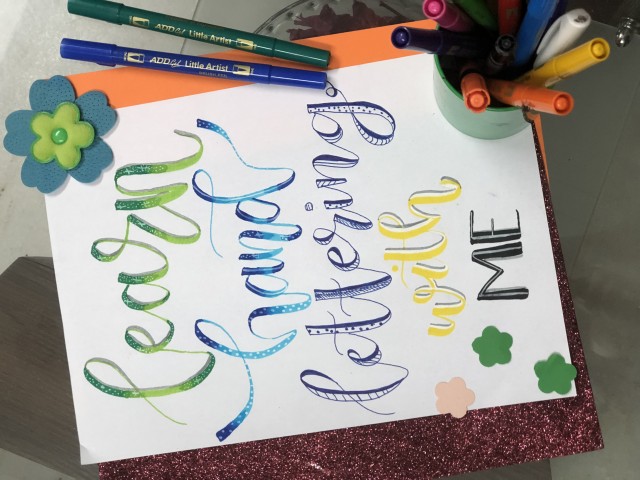 ADD Gel Little Artist
ADD Gel Little Artist
BRUSH PEN
learn
hand
lettering
with
MIE